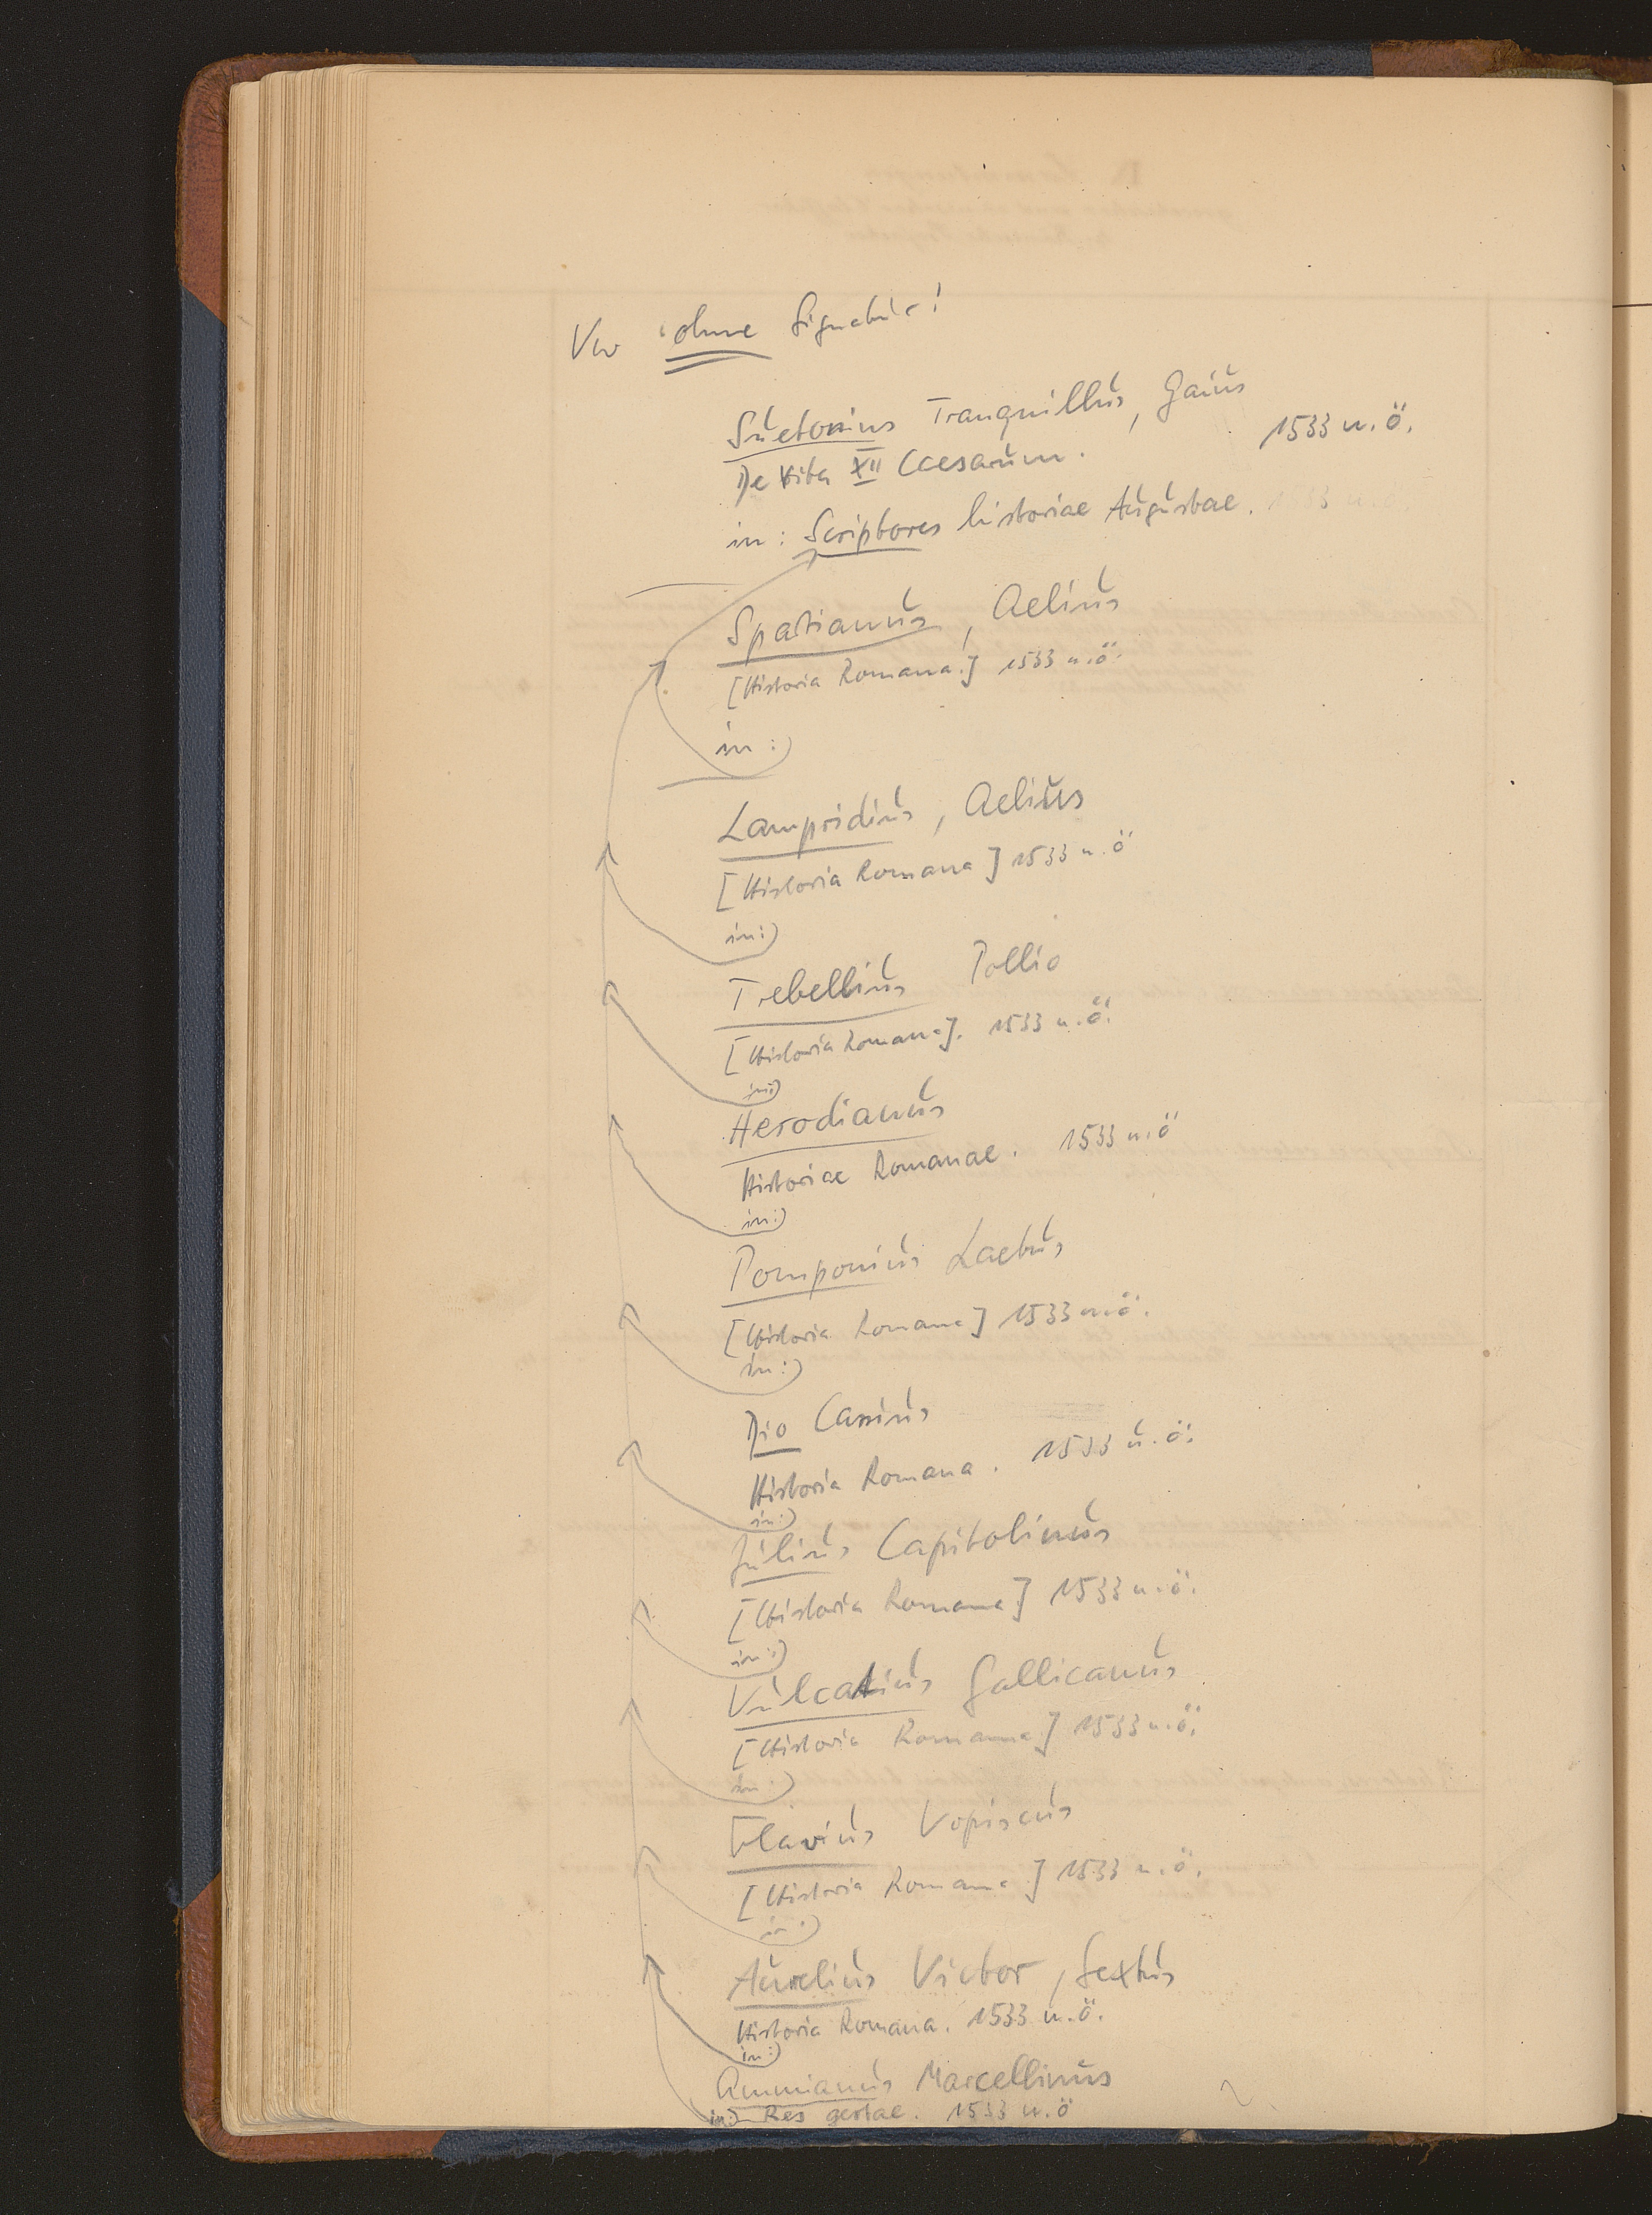 Vw ohne Signatur!
Suetonius Tranquillus, Gaius
1533 u. ö.
De Vita XII Caesarum.
in: Scriptores historiae Augustae. 1533 u. ö.
Spatianus, Aelius
[Historia Romana.] 1533 u. ö.
in:)
Lampridius, Aelius
[Historia Romana] 1533 u. ö
in:)
Trebellius Pollio
[Historia Romana]. 1533 u. ö.
in:)
Herodianus
Historiae Romanae. 1533 u. ö
in:)
Pomponius Laetus
[Historia Romana] 1533 u. ö.
in:)
Dio Cassius
Historia Romana. 1533 u. ö.
in:)
Julius Capitolinus
[Historia Romana] 1533 u. ö.
in:)
Vulcatius Gallicanus
[Historia Romana] 1533 u. ö.
in:)
Flavius Vopiscus
[Historia Romana] 1533 u. ö.
in:)
Aurelius Victor, Sextus
Historia Romana. 1533 u. ö.
in:)
Ammianus Marcellinus
in:) Res gestae. 1533 u. ö